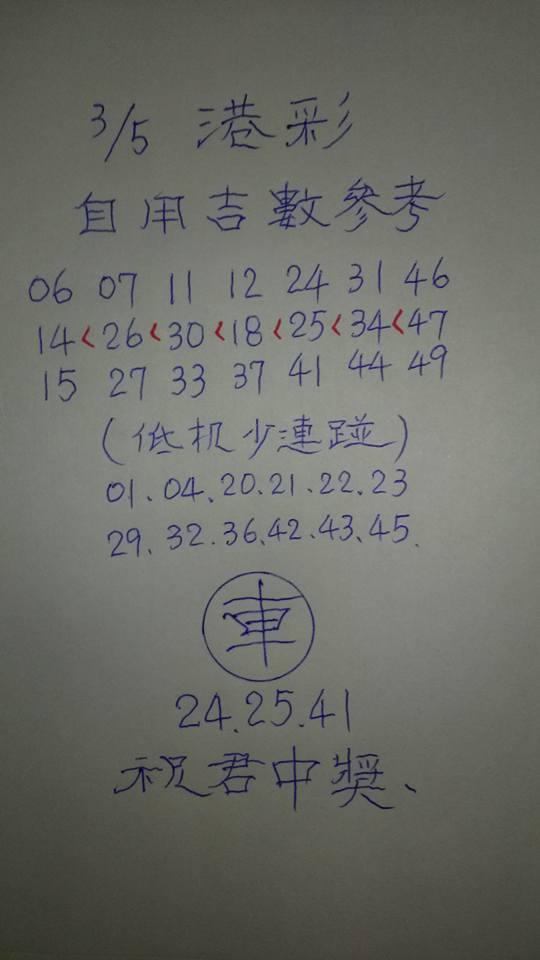 3/5 港彩
自用吉數參考
06 07 11 12 24 31 46
14<26<30<18<25<34<47
15 27 33 37 41 44 49
(低机少連碰)
01、04、20.21、22、23
29、32.36、42.43、45.
車
24.25.41
祝君中獎、